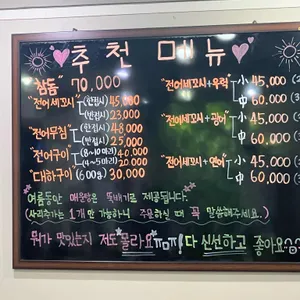 추천 메뉴
"참돔" 70,000
"전어세꼬시" (한접시) 45,000
(반접시) 23,000
"전어무침" (한접시) 48,000
(반접시) 25,000
"전어구이" (8~10마리) 40,000
(4~5마리) 20,000
"대하구이" (600g) 30,000
"전어세꼬시+우럭" 小 45,000
中 60,000
"전어세꼬시+광어" 小 45,000
中 60,000
"전어세꼬시+연어" 小 45,000
中 60,000
여름동안 매운탕은 뚝배기로 제공됩니다.
(사리추가는 1개만 가능하니 주문하실 때 꼭 말씀해주세요.)
뭐가 맛있는지 저도 몰라요ㅠㅁㅠ! 다 신선하고 좋아요